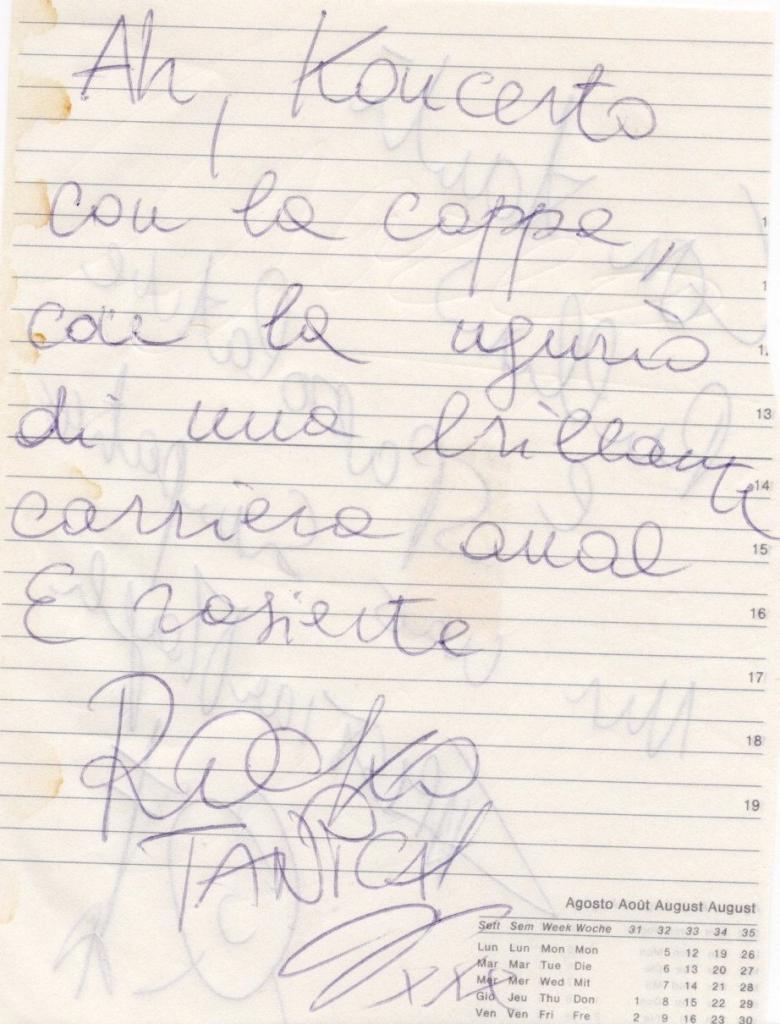 Ah, Koncerto
con la cappa,
con la uguriò
di una brillante
carriera anal
E rasiente
TANICH
xxx
13
14
15
16
17
18
19
Agosto Août August August
Sett Sem Week Woche 31 32 33 34 35
Lun Lun Mon Mon 5 12 19 26
Mar Mar Tue Die 6 13 20 27
Mer Mer Wed Mit 7 14 21 28
Gio Jeu Thu Don 1 8 15 22 29
Ven Ven Fri Fre 2 9 16 23 30